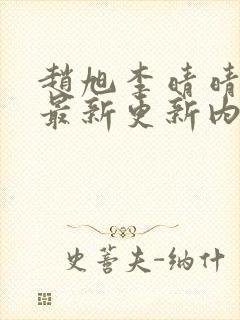 趙旭李晴晴
最新更新內
史蒈夫-納什